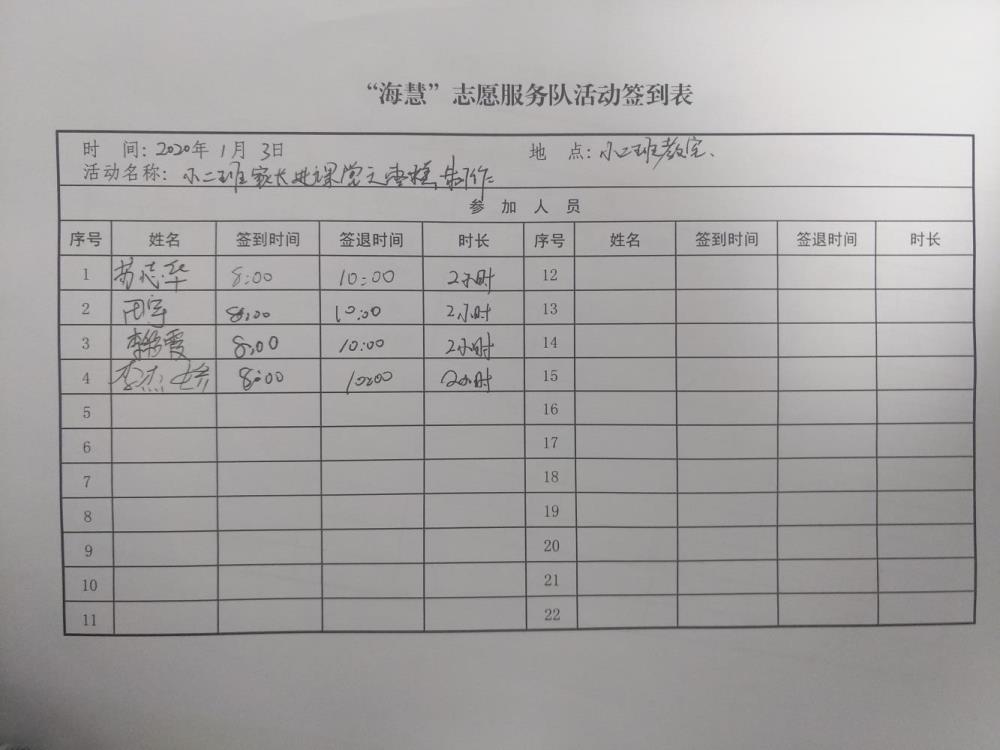 “海慧”志愿服务队活动签到表
时 间: 2020年 1月 3日 地 点: 小二班教室、
活动名称: 小二班家长进课堂之枣糕制作
参 加 人 员
序号 姓名 签到时间 签退时间 时长 序号 姓名 签到时间 签退时间 时长
1 苏志华 8:00 10:00 2小时 12
2 田宇 8:00 10:00 2小时 13
3 李 霞 8:00 10:00 2小时 14
4 李杰 8:00 10:00 2小时 15
5 16
6 17
7 18
8 19
9 20
10 21
11 22